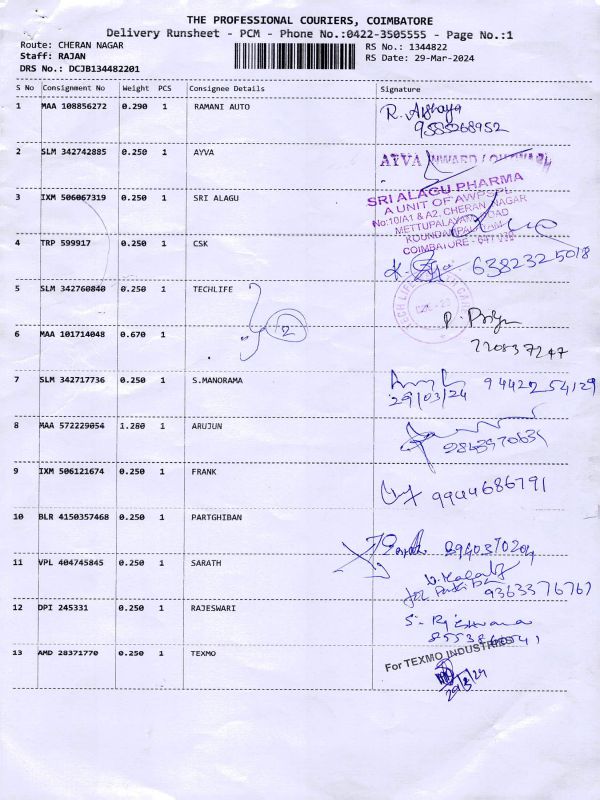 THE PROFESSIONAL COURIERS, COIMBATORE
Delivery Runsheet - PCM - Phone No.:0422-3505555 - Page No.:1
Route: CHERAN NAGAR RS No.: 1344822
Staff: RAJAN RS Date: 29-Mar-2024
DRS No.: DCJB134482201
S No Consignment No Weight PCS Consignee Details Signature
1 MAA 108856272 0.290 1 RAMANI AUTO R.
9585268952
2 SLM 342742885 0.250 1 AYVA AYVA INWARD /
3 IXM 506067319 0.250 1 SRI ALAGU SRI ALAGU PHARMA
A UNIT OF AWPSPL
No:10/A1 & A2, CHERAN NAGAR
METTUPALAYAM ROAD
KOUNDAMPALAYAM
COIMBATORE - 641 030
4 TRP 599917 0.250 1 CSK 6382325018
5 SLM 342760840 0.250 1 TECHLIFE P. Priya
2
6 MAA 101714048 0.670 1
7 SLM 342717736 0.250 1 S.MANORAMA 9442254129
29/03/24
8 MAA 572229054 1.280 1 ARUJUN
9 IXM 506121674 0.250 1 FRANK 9944686791
10 BLR 4150357468 0.250 1 PARTGHIBAN
11 VPL 404745845 0.250 1 SARATH
9363376767
12 DPI 245331 0.250 1 RAJESWARI
13 AMD 28371770 0.250 1 TEXMO For TEXMO INDUSTRIES
29/3/24